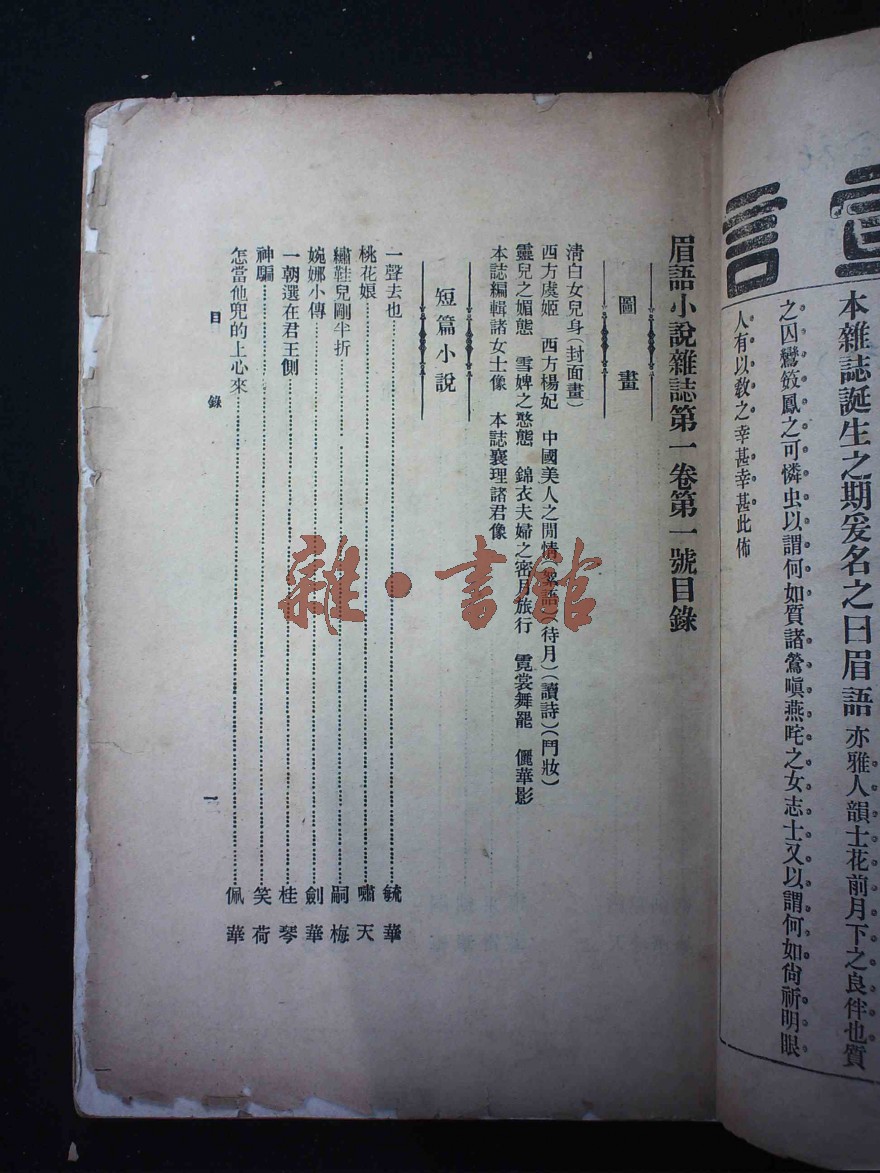 宣言
本雜誌誕生之期爰名之曰眉語亦雅人韻士花前月下之良伴也質
之囚鸞笯鳳之可憐虫以謂何如質諸鶯嗔燕咤之女志士又以謂何如尙祈明眼
人有以敎之幸甚幸甚此佈
眉語小說雜誌第一卷第一號目錄
圖畫
淸白女兒身(封面畫)
西方虞姬 西方楊妃 中國美人之閒情(絮語)(待月)(讀詩)(鬥妝)
靈兒之媚態 雪婢之憨態 錦衣夫婦之密月旅行 霓裳舞罷 儷華影
本誌編輯諸女士像 本誌襄理諸君像
短篇小說
一聲去也 毓華
桃花娘 嘯天
繡鞋兒剛半折 嗣梅
婉娜小傳 劍華
一朝選在君王側 桂琴
神騙 笑荷
怎當他兜的上心來 佩華
目錄
一
雜·書館